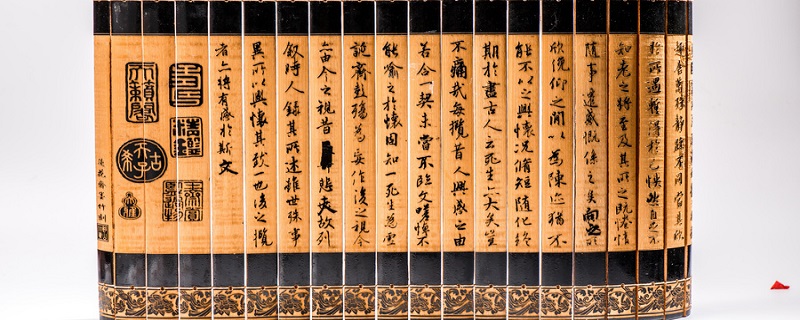 趣舍萬殊靜躁不同當其欣
於所遇暫得於己怏然自足不
知老之將至及其所之既惓情
隨事遷感慨係之矣向之所
欣俛仰之間以為陳迹猶不
能不以之興懷況脩短隨化終
期於盡古人云死生亦大矣豈
不痛哉每攬昔人興感之由
若合一契未嘗不臨文嗟悼不
能喻之於懷固知一死生為虛
誕齊彭殤為妄作後之視今
亦由今之視昔悲夫故列
敘時人錄其所述雖世殊事
異所以興懷其致一也後之攬
者亦將有感於斯文